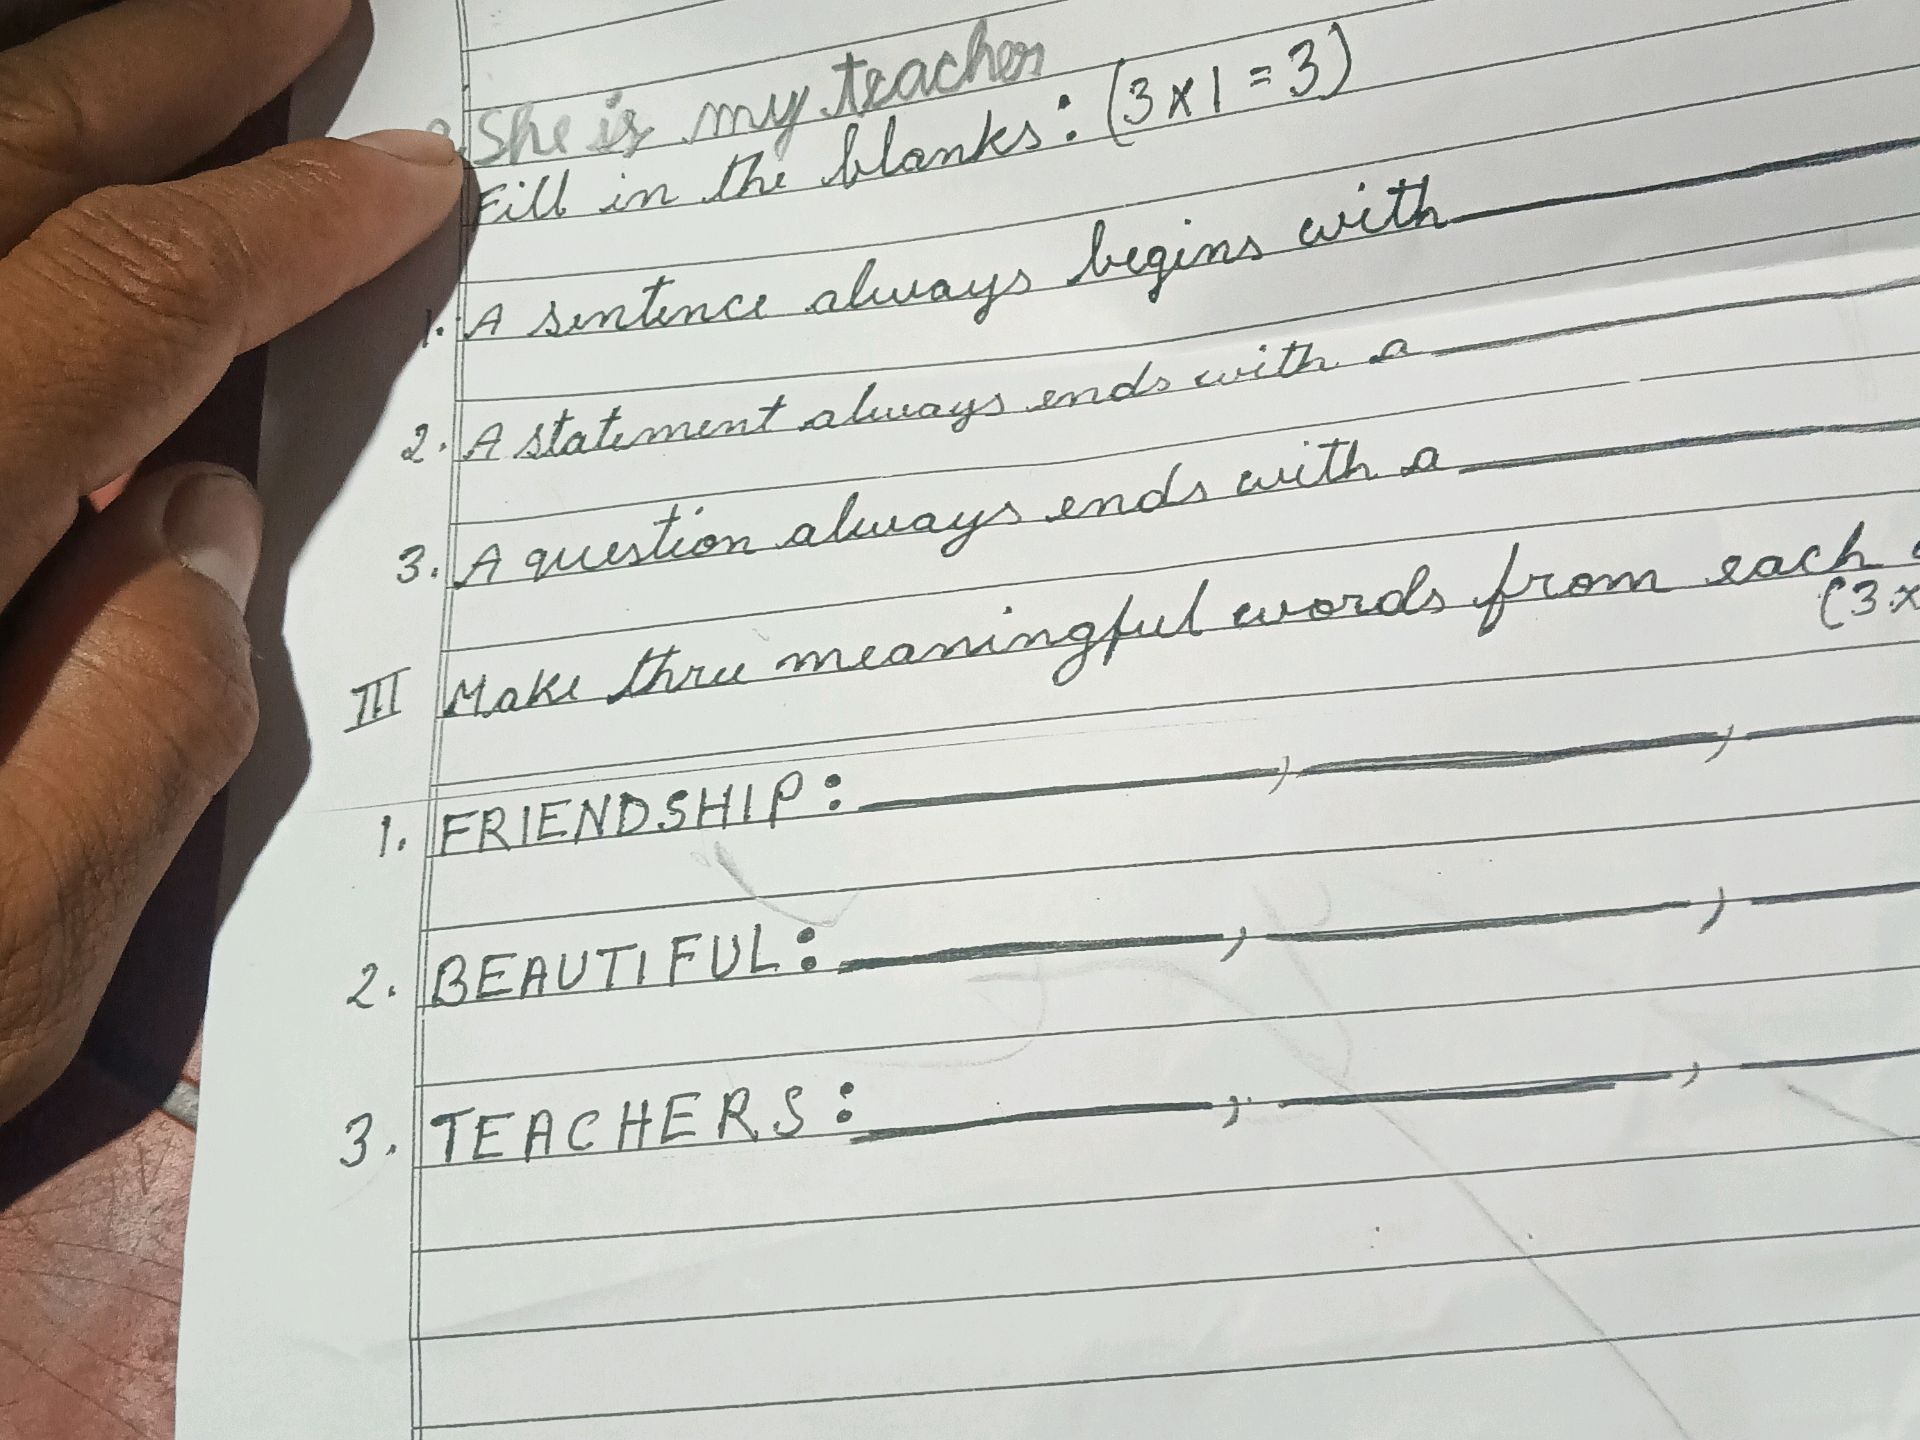 She is my teacher
Fill in the blanks: (3x1=3)
1. A sentence always begins with
2. A statement always ends with a
3. A question always ends with a
III Make three meaningful words from each
(3x
1. FRIENDSHIP: , ,
2. BEAUTIFUL: , ,
3. TEACHERS: , ,